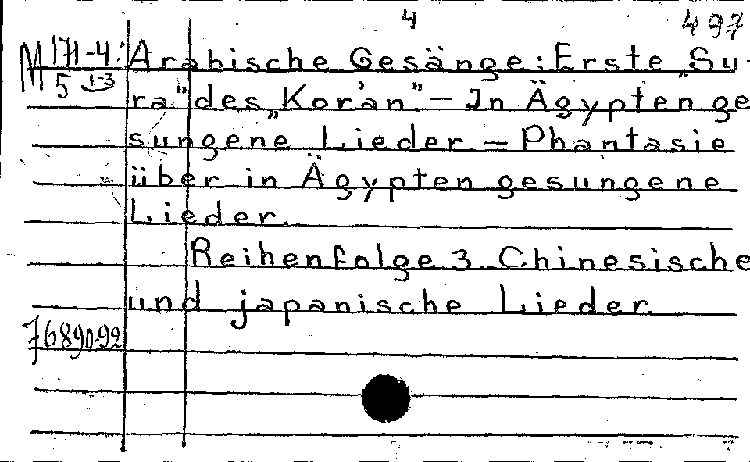 4
497
M 171-4:
5 1-3
Arabische Gesänge: Erste „Su-
ra" des „Korân" – In Ägypten ge
sungene Lieder – Phantasie
über in Ägypten gesungene
Lieder.
Reihenfolge 3 Chinesische
und japanische Lieder.
76890-92